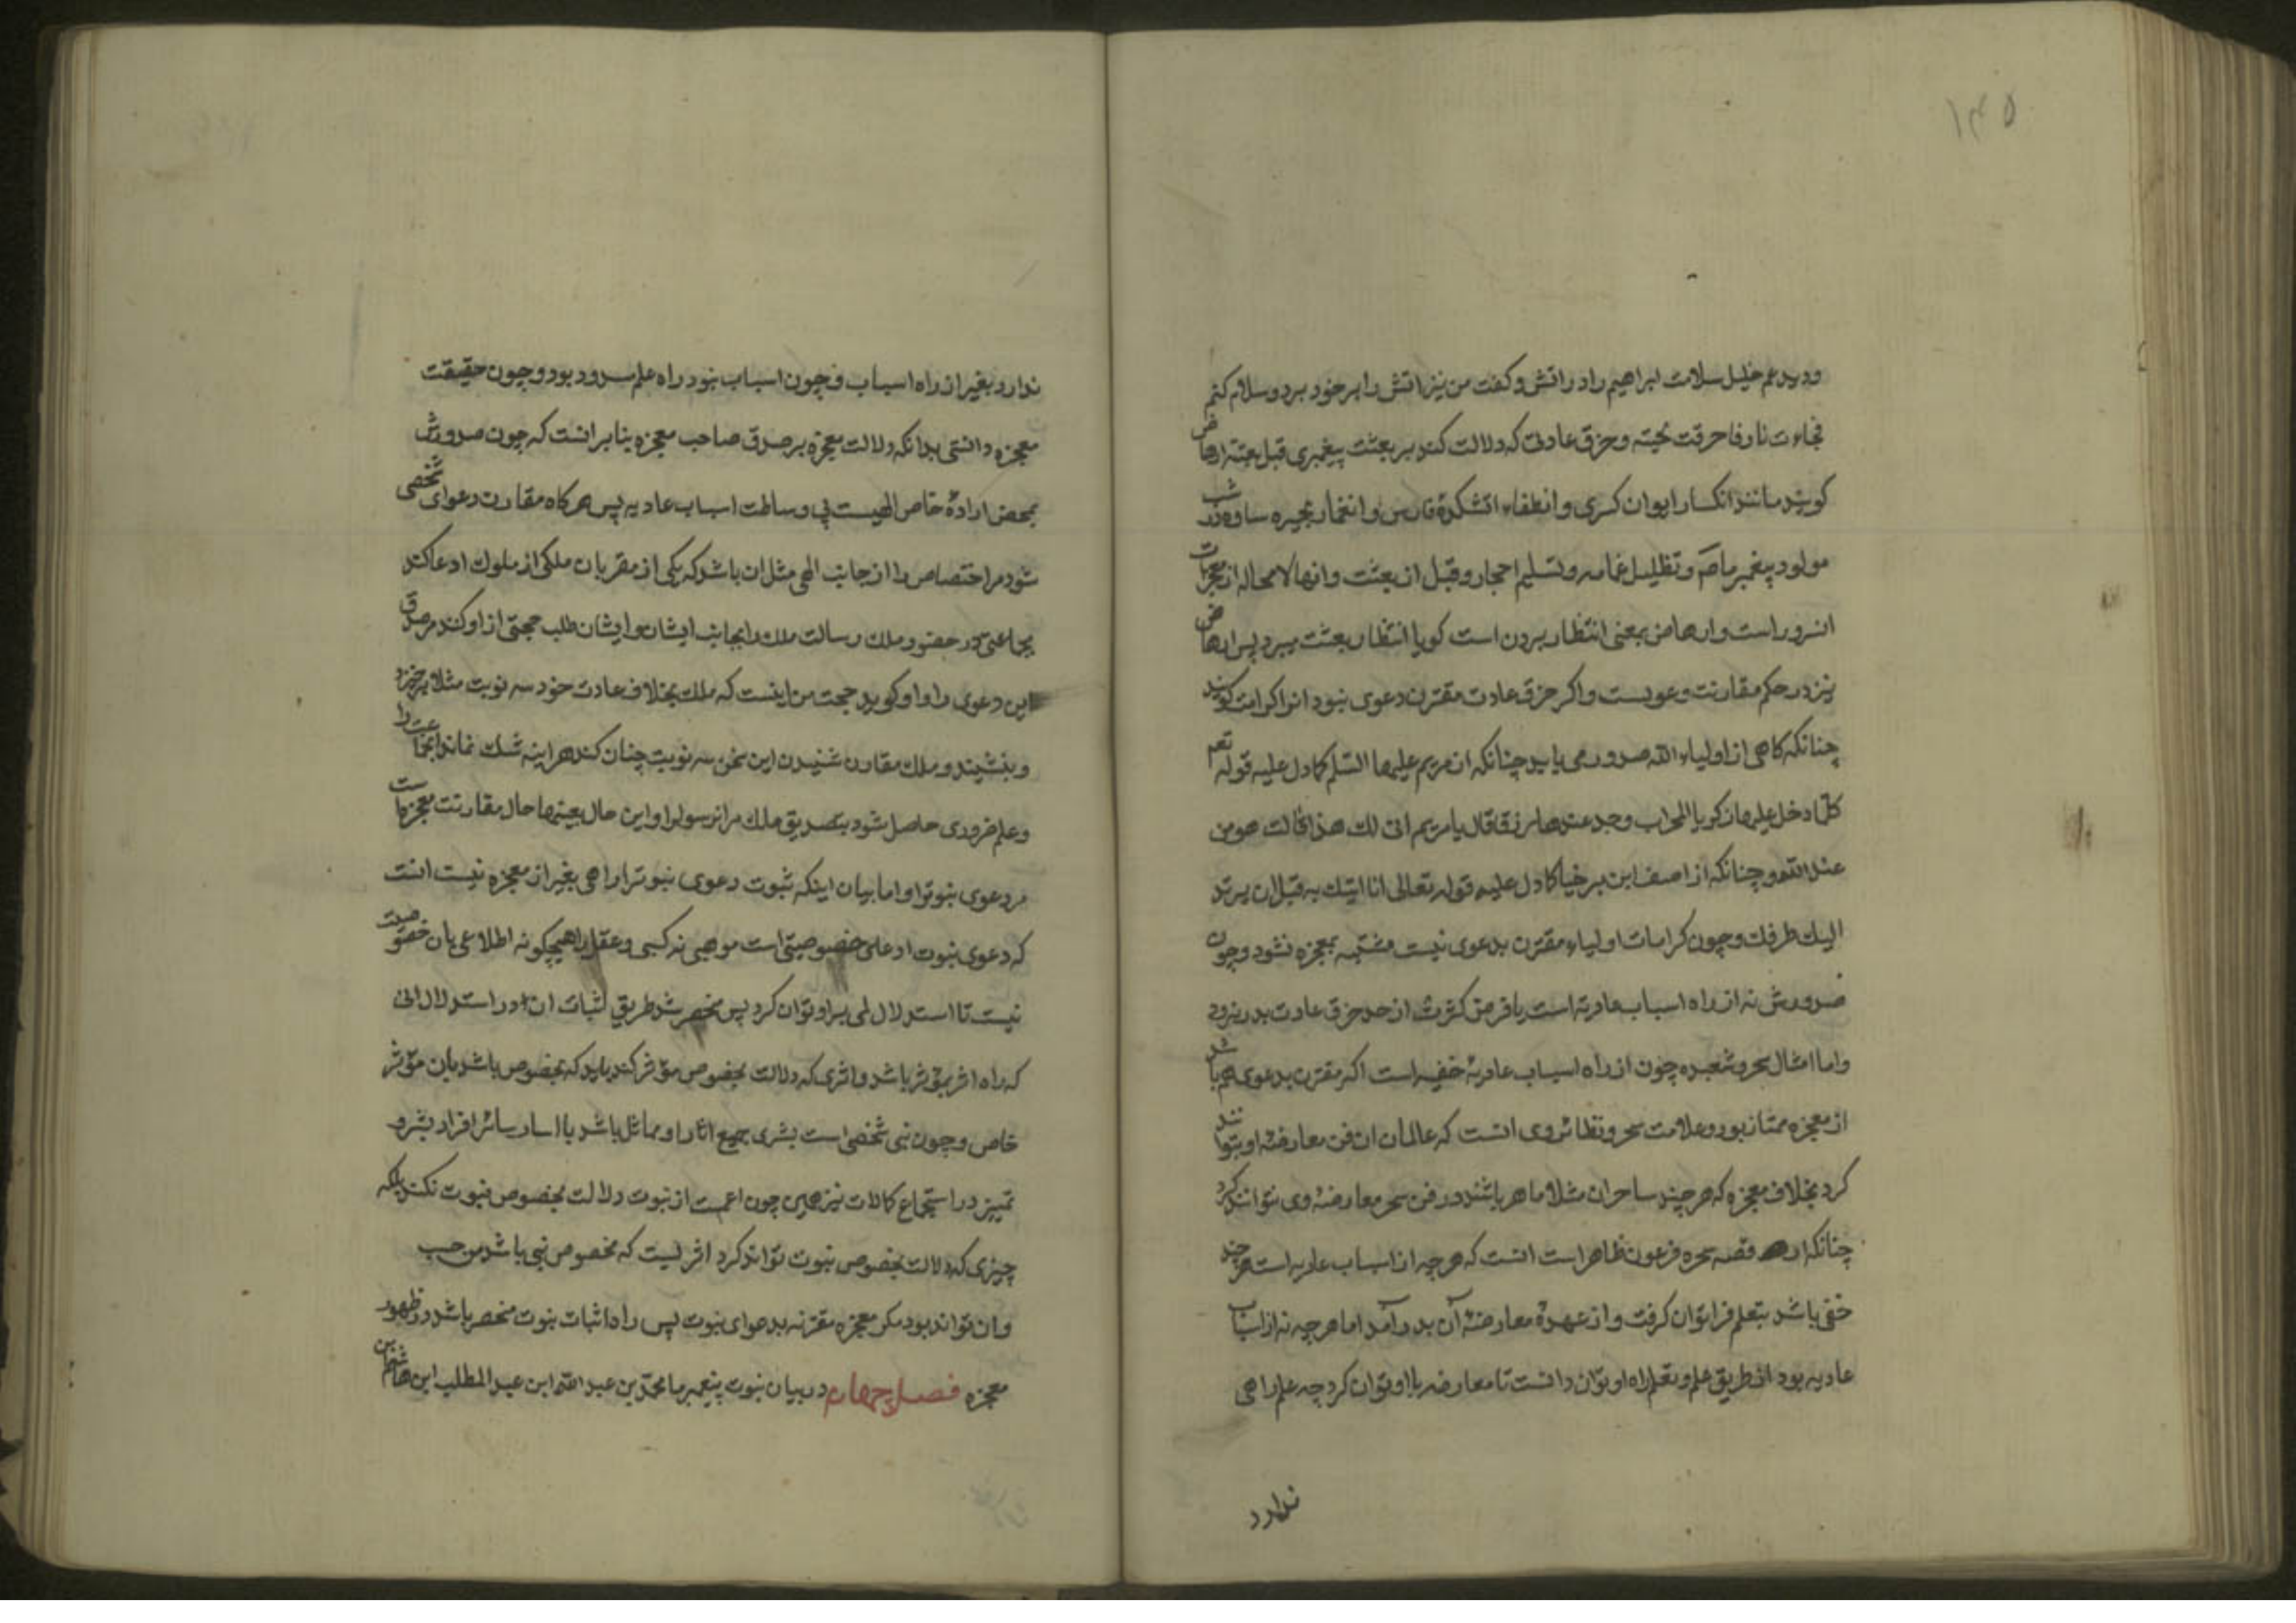 ۱۴۵
و دید عم خلیل سلامت ابراهیم را در اتش و کفت من نیز اتش را بر خود برد و سلام کنم
فجاءت نار فاحرقت لحیته و خرق عادتی که دلالت کند بر بعثت پیغمبری قبل بعثته ارهاض
کویند مانند انکسار ایوان کسری و انطفاء اتشکدۀ فارس و بحیره ساوه در شب
مولود پیغمبر ما صم و تظلیل غمامه و تسلیم احجار و قبل از بعثت و انها لا محاله از معجزات
انسرور است و ارهاض بمعنی انتظار بردن است کویا انتظار بعثت میبرد پس ارهاض
نیز در حکم مقارنت دعویست و اکر خرق عادت مقترن دعوی نبود انرا کرامت کویند
چنانکه کاهی از اولیاء الله صدور می یابد چنانکه از مریم علیها السّلم کما دل علیه قوله تعم
کلّما دخل علیها زکریا المحراب وجد عندها رزقا قال یا مریم انی لک هذا قالت هو من
عند الله و چنانکه از اصف ابن برخیا کما دل علیه قوله تعالی انا اتیک به قبل ان یرتد
الیک طرفک و چون کرامات اولیاء مقترن بدعوی نیست مشتبه بمعجزه نشود و چون
صدورش نه از راه اسباب عادیه است با فرض کثرت از حد خرق عادت بدر نرود
و اما امثال سحر و شعبده چون از راه اسباب عادیۀ خفیه است اکر مقترن بدعوی هم باشد
از معجزه ممتاز بود و علامت سحر و نظائر وی انست که عالمان ان فن معارضۀ او بتوانند
کرد بخلاف معجزه که هر چند ساحران مثلا ماهر باشند در فن سحر معارضۀ وی نتوانند کرد
چنانکه از قصه سحره فرعون ظاهر است انست که هر چه از اسباب عادیه است هر چند
خفی باشد بتعلم فرا توان کرفت و از عهدۀ معارضۀ آن بدر آمد اما هر چه نه از اسباب
عادیه بود از طریق علم و تعلم راه او توان دانست تا معارضه با او توان کرد چه علم راهی
ندارد
ندارد بغیر از راه اسباب و چون اسباب نبود راه علم مسدود بود و چون حقیقت
معجزه دانستی بدانکه دلالت معجزه بر صدق صاحب معجزه بنابر انست که چون صدورش
بمحض ارادۀ خاص الهیست بی وساطت اسباب عادیه پس هر کاه مقارن دعوای شخصی
شود مر اختصاص را از جانب الهی مثل ان باشد که یکی از مقربان ملکی از ملوک ادعا کند
بجماعتی در حضور ملک رسالت ملک را بجانب ایشان و ایشان طلب حجتی از او کند مر صدق
این دعوی را و او کوید حجت من اینست که ملک بخلاف عادت خود سه نوبت مثلا برخیزد
و بنشیند و ملک مقارن شنیدن این سخن سه نوبت چنان کند هراینه شک نماند انجماعت را
و علم ضروری حاصل شود بتصدیق ملک مر انرسول را و این حال بعینها حال مقارنت معجزه است
مر دعوی نبوترا و اما بیان اینکه ثبوت دعوی نبوترا راهی بغیر از معجزه نیست انست
که دعوی نبوت ادعای خصوصیتی است موهبی نه کسبی و عقل را هیچکونه اطلاعی بان خصوصیت
نیست تا استدلال لمی بر او توان کرد پس منحصر شد طریق اثبات ان در استدلال انی
که راه اثر بمؤثر باشد و اثری که دلالت بخصوص مؤثر کند باید که مخصوص باشد بان مؤثر
خاص و چون نبی شخصی است بشری جمیع اثار او مماثل باشد با اسار سائر افراد بشر و
تمییز در استجماع کمالات نیز همین چون اعمست از نبوت دلالت بخصوص نبوت نکند بلکه
چیزی که دلالت بخصوص نبوت تواند کرد اثریست که مخصوص نبی باشد من حسب
و ان نتواند بود مکر معجزه مقترنه بدعوای نبوت پس راه اثبات نبوت منحصر باشد در ظهور
معجزه فصل چهارم در بیان نبوت پیغمبر ما محمد بن عبد الله ابن عبد المطلب ابن هاشم بن